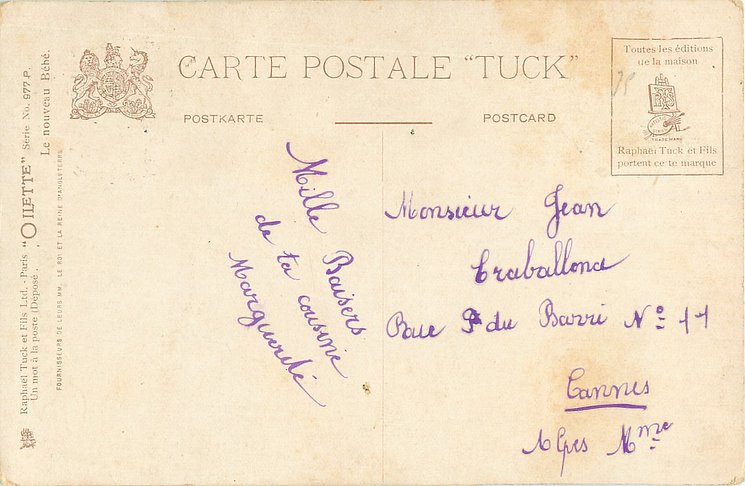 CARTE POSTALE "TUCK"
POSTKARTE
POSTCARD
Toutes les éditions
de la maison
TRADE MARK
Raphael Tuck et Fils
portent ce te marque
Raphael Tuck et Fils Ltd. - Paris "OILETTE" Série No. 977 P.
Un mot à la poste (Déposé.
Le nouveau Bébé.
FOURNISSEURS DE LEURS MM. LE ROI ET LA REINE D'ANGLETERRE
Mille Baisers
de ta cousine
Marguerite
Monsieur Jean
Craballona
Rue du Barri No 11
Cannes
Alpes Mme